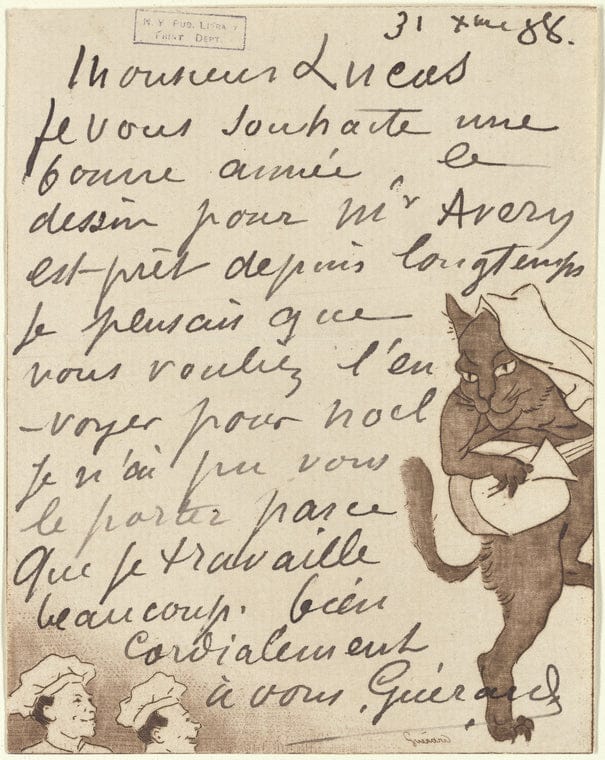 N. Y. PUB. LIBRARY
PRINT DEPT.
31 Xme 88.
Monsieur Lucas
Je vous souhaite une
bonne année, le
dessin pour Mr Avery
est prêt depuis longtemps
je pensais que
vous vouliez l'en
-voyer pour noel
je n'ai pu vous
le porter parce
que je travaille
beaucoup. bien
cordialement
à vous. Guérard
Guérard